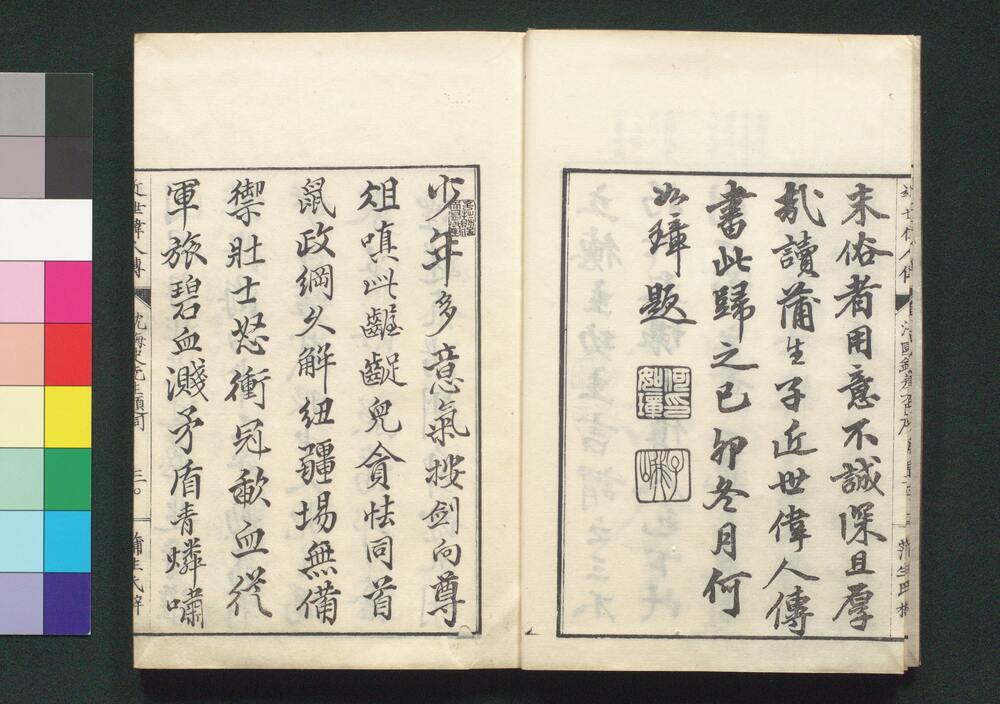 末俗者用意不誠深且厚
哉讀蒲生子近世偉人傳
書此歸之己卯冬月何
如璋題
何印如璋
子峨
少年多意氣按劍向尊
俎嗔此齷齪兒貪怯同首
鼠政綱久解紐疆場無備
禦壯士怒衝冠歃血從
軍旅碧血濺矛盾青燐嘯
近世偉人傳
三
蒲生氏梓